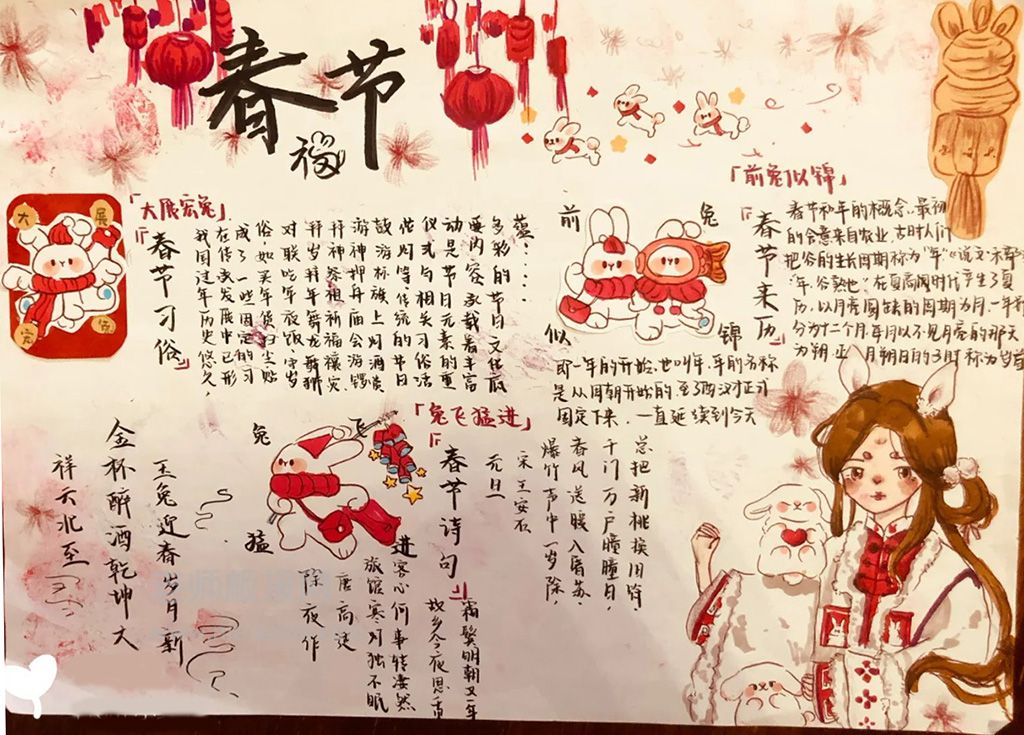 春节
福
「大展宏兔」
大
展
宏
兔
『春节习俗』
我国过年历史悠久，
在传承发展中已形
成了一些固定的习
俗，如买年货扫尘贴
对联吃年夜饭守岁
拜岁拜年舞龙舞狮
拜神祭祖祈福禳灾
游神押舟庙会游锣
鼓游标旗上灯酒赏
花灯等传统的节日
仪式与相关习俗活
动是节日元素的重
要内容承载着丰富
多彩的节日文化底
蕴……
「前兔似锦」
前
兔
似
锦
『春节来历』
春节和年的概念，最初
的含意来自农业，古时人们
把谷的生长周期称为“年”《说文·禾部》
“年，谷熟也”在夏商周时代产生了夏
历，以月亮圆缺的周期为月，一年
分为十二个月，每月以不见月亮的那天
为朔，正月朔日的子时称为岁首
即一年的开始，也叫年，年的名称
是从周朝开始的，至了西汉才正式
固定下来，一直延续到今天
「兔飞猛进」
兔
飞
猛
进
『春节诗句』
元日
宋 王安石
爆竹声中一岁除，
春风送暖入屠苏。
千门万户曈曈日，
总把新桃换旧符
除夜作
唐 高适
旅馆寒灯独不眠
客心何事转凄然
故乡今夜思千里
霜鬓明朝又一年
玉兔迎春岁月新
金杯醉酒乾坤大
祥云兆至